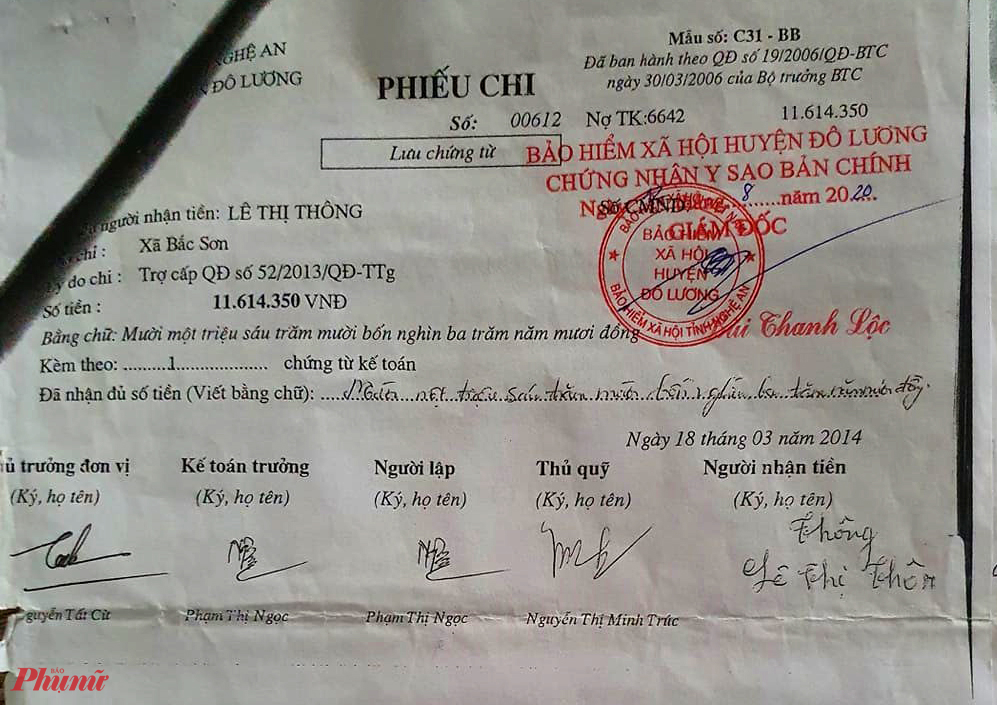 NGHỆ AN
ĐÔ LƯƠNG
Mẫu số: C31 - BB
Đã ban hành theo QĐ số 19/2006/QĐ-BTC
ngày 30/03/2006 của Bộ trưởng BTC
PHIẾU CHI
Số: 00612 Nợ TK:6642 11.614.350
Lưu chứng từ
BẢO HIỂM XÃ HỘI HUYỆN ĐÔ LƯƠNG
CHỨNG NHẬN Y SAO BẢN CHÍNH
Số CMND: 8 năm 2020
GIÁM ĐỐC
BẢO HIỂM
XÃ HỘI
HUYỆN
ĐÔ LƯƠNG
BẢO HIỂM XÃ HỘI TỈNH NGHỆ AN
Thanh Lộc
người nhận tiền: LÊ THỊ THÔNG
chỉ : Xã Bắc Sơn
do chi : Trợ cấp QĐ số 52/2013/QĐ-TTg
Số tiền : 11.614.350 VNĐ
Bằng chữ: Mười một triệu sáu trăm mười bốn nghìn ba trăm năm mươi đồng
Kèm theo: .........1................... chứng từ kế toán
Đã nhận đủ số tiền (Viết bằng chữ): Mười một triệu sáu trăm mười bốn nghìn ba trăm năm mươi đồng.
Ngày 18 tháng 03 năm 2014
trưởng đơn vị Kế toán trưởng Người lập Thủ quỹ Người nhận tiền
(Ký, họ tên) (Ký, họ tên) (Ký, họ tên) (Ký, họ tên) (Ký, họ tên)
Thông
Lê Thị Thôn
guyễn Tất Cừ Phạm Thị Ngọc Phạm Thị Ngọc Nguyễn Thị Minh Trúc
BÁO
Phụ nữ